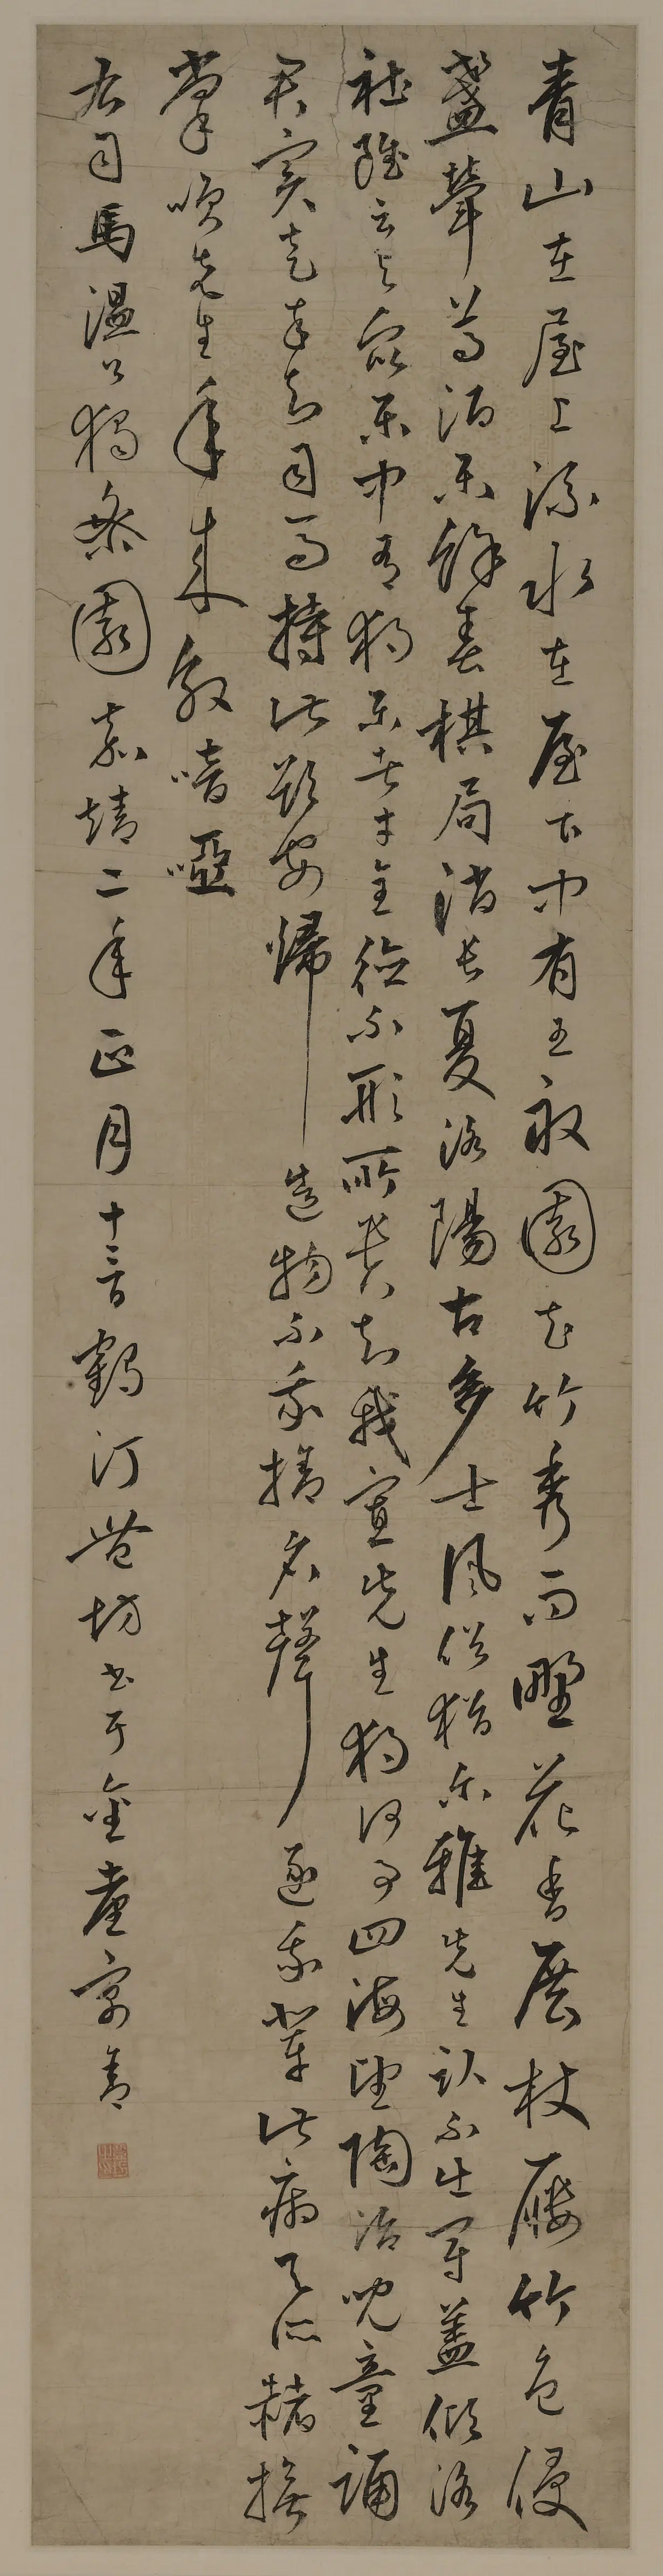 青山在屋上流水在屋下中有五畝園花竹秀而野花香展杖屨竹色侵
盞斝尊酒樂餘春棋局消長夏洛陽古多士風俗猶尔雅先生臥不出冠蓋傾洛
社雖云與衆樂中有獨樂者才全德不形所貴知我寡先生獨何事四海望陶冶兒童誦
君實走卒知司馬持此欲安歸造物不我捨名聲逐我輩此病天所赭撫
掌笑先生年來效喑啞
右司馬溫公獨樂園嘉靖二年正月十三日鶴汀豐坊書于金臺寓舍